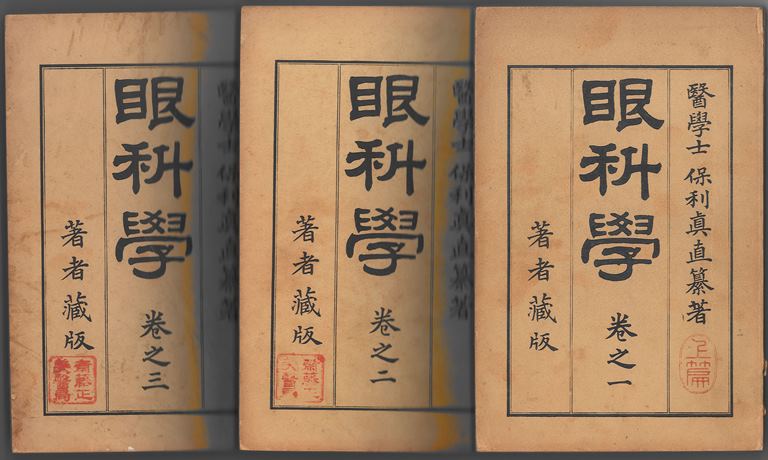 醫學士 保利眞直纂著
上篇
眼科學 卷之一
著者藏版
醫學士 保利眞直纂著
眼科學 卷之二
著者藏版
眼科學 卷之三
著者藏版